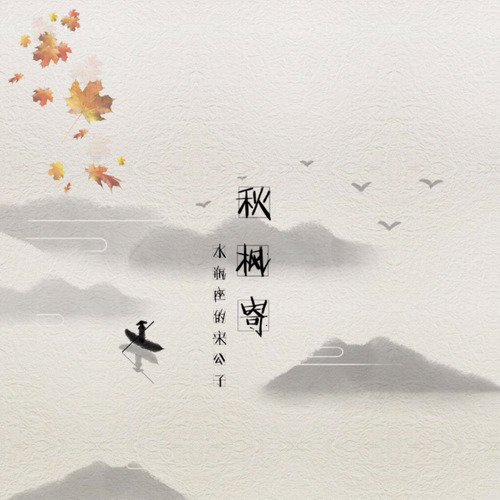 秋枫寄
水瓶座的宋公子